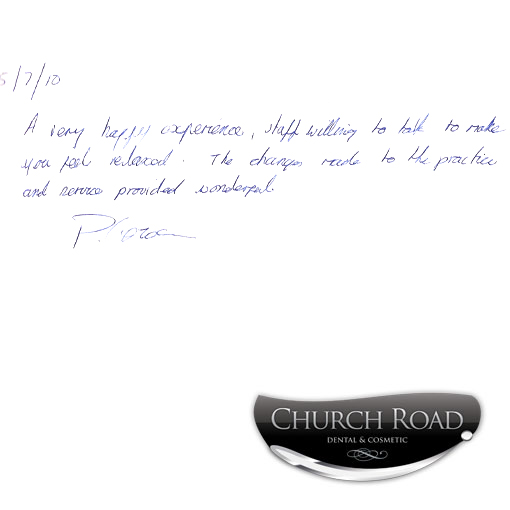 5/7/10
A very happy experience, staff willing to talk to make
you feel relaxed. The changes made to the practice
and service provided wonderful.
P.
CHURCH ROAD
DENTAL & COSMETIC